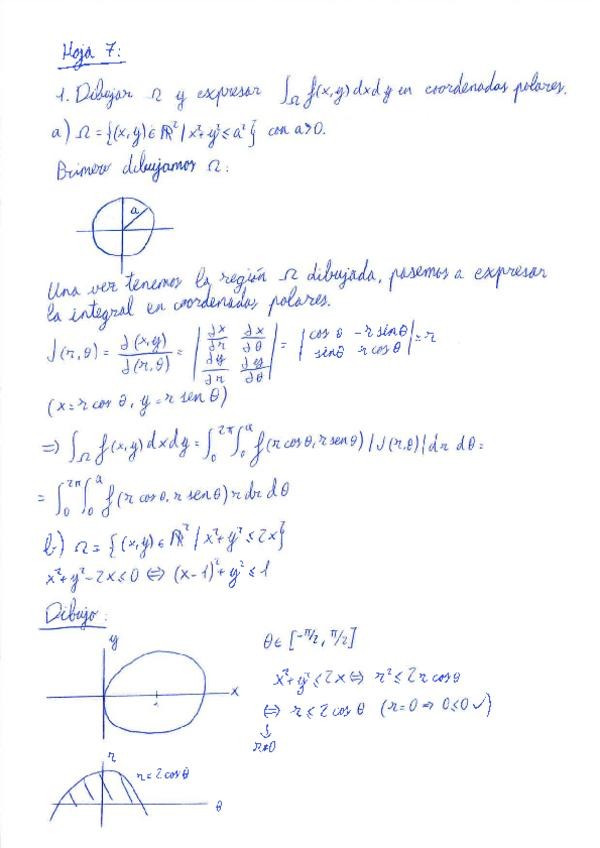 Hoja 7:
1. Dibujar Ω y expresar ∫_Ω f(x,y) dxdy en coordenadas polares.
a) Ω = {(x,y) ∈ ℝ² / x²+y² ≤ a²} con a>0.
Primero dibujamos Ω:
a
Una vez tenemos la región Ω dibujada, pasemos a expresar
la integral en coordenadas polares.
J(r,θ) = ∂(x,y)/∂(r,θ) = |∂x/∂r ∂x/∂θ; ∂y/∂r ∂y/∂θ| = |cos θ -r sinθ; sinθ r cosθ| = r
(x = r cos θ, y = r sen θ)
⇒ ∫_Ω f(x,y) dxdy = ∫₀^2π ∫₀^a f(r cosθ, r senθ) |J(r,θ)| dr dθ =
= ∫₀^2π ∫₀^a f(r cosθ, r senθ) r dr dθ
b) Ω = {(x,y) ∈ ℝ² / x²+y² ≤ 2x}
x²+y²-2x ≤ 0 ⇔ (x-1)²+y² ≤ 1
Dibujo:
y
θ ∈ [-π/2, π/2]
x²+y² ≤ 2x ⇔ r² ≤ 2r cosθ
x
1
⇔ r ≤ 2 cos θ (r=0 ⇒ 0≤0 ✓)
↓
r≠0
r
r = 2 cos θ
θ